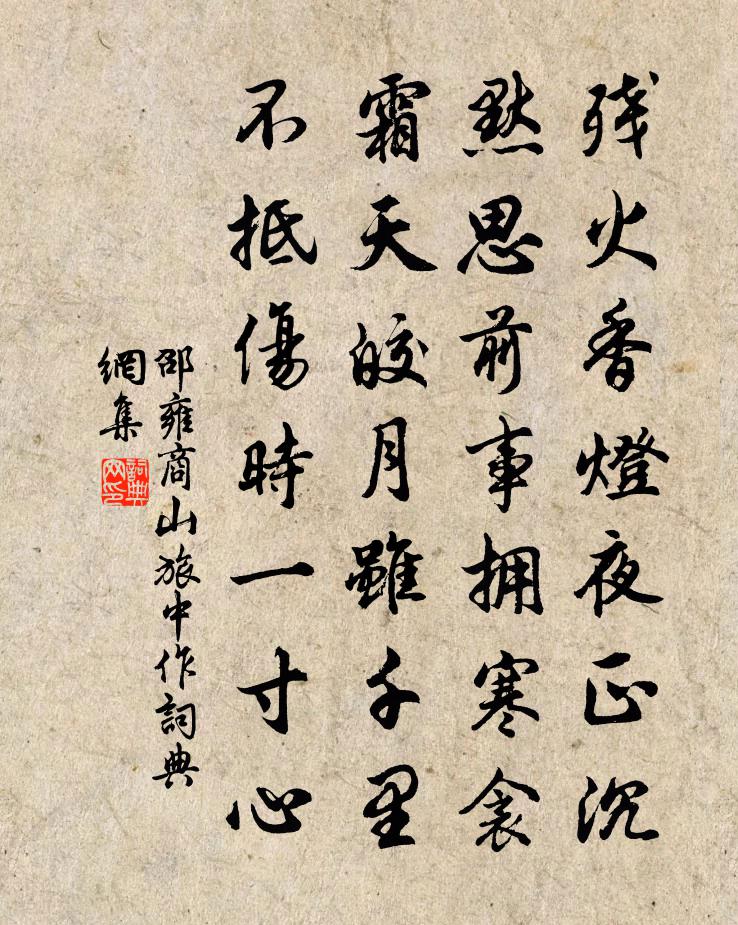 残火香燈夜正沉
默思前事拥寒衾
霜天皎月雖千里
不抵傷時一寸心
邵雍商山旅中作詞典
網集
詞典
网印